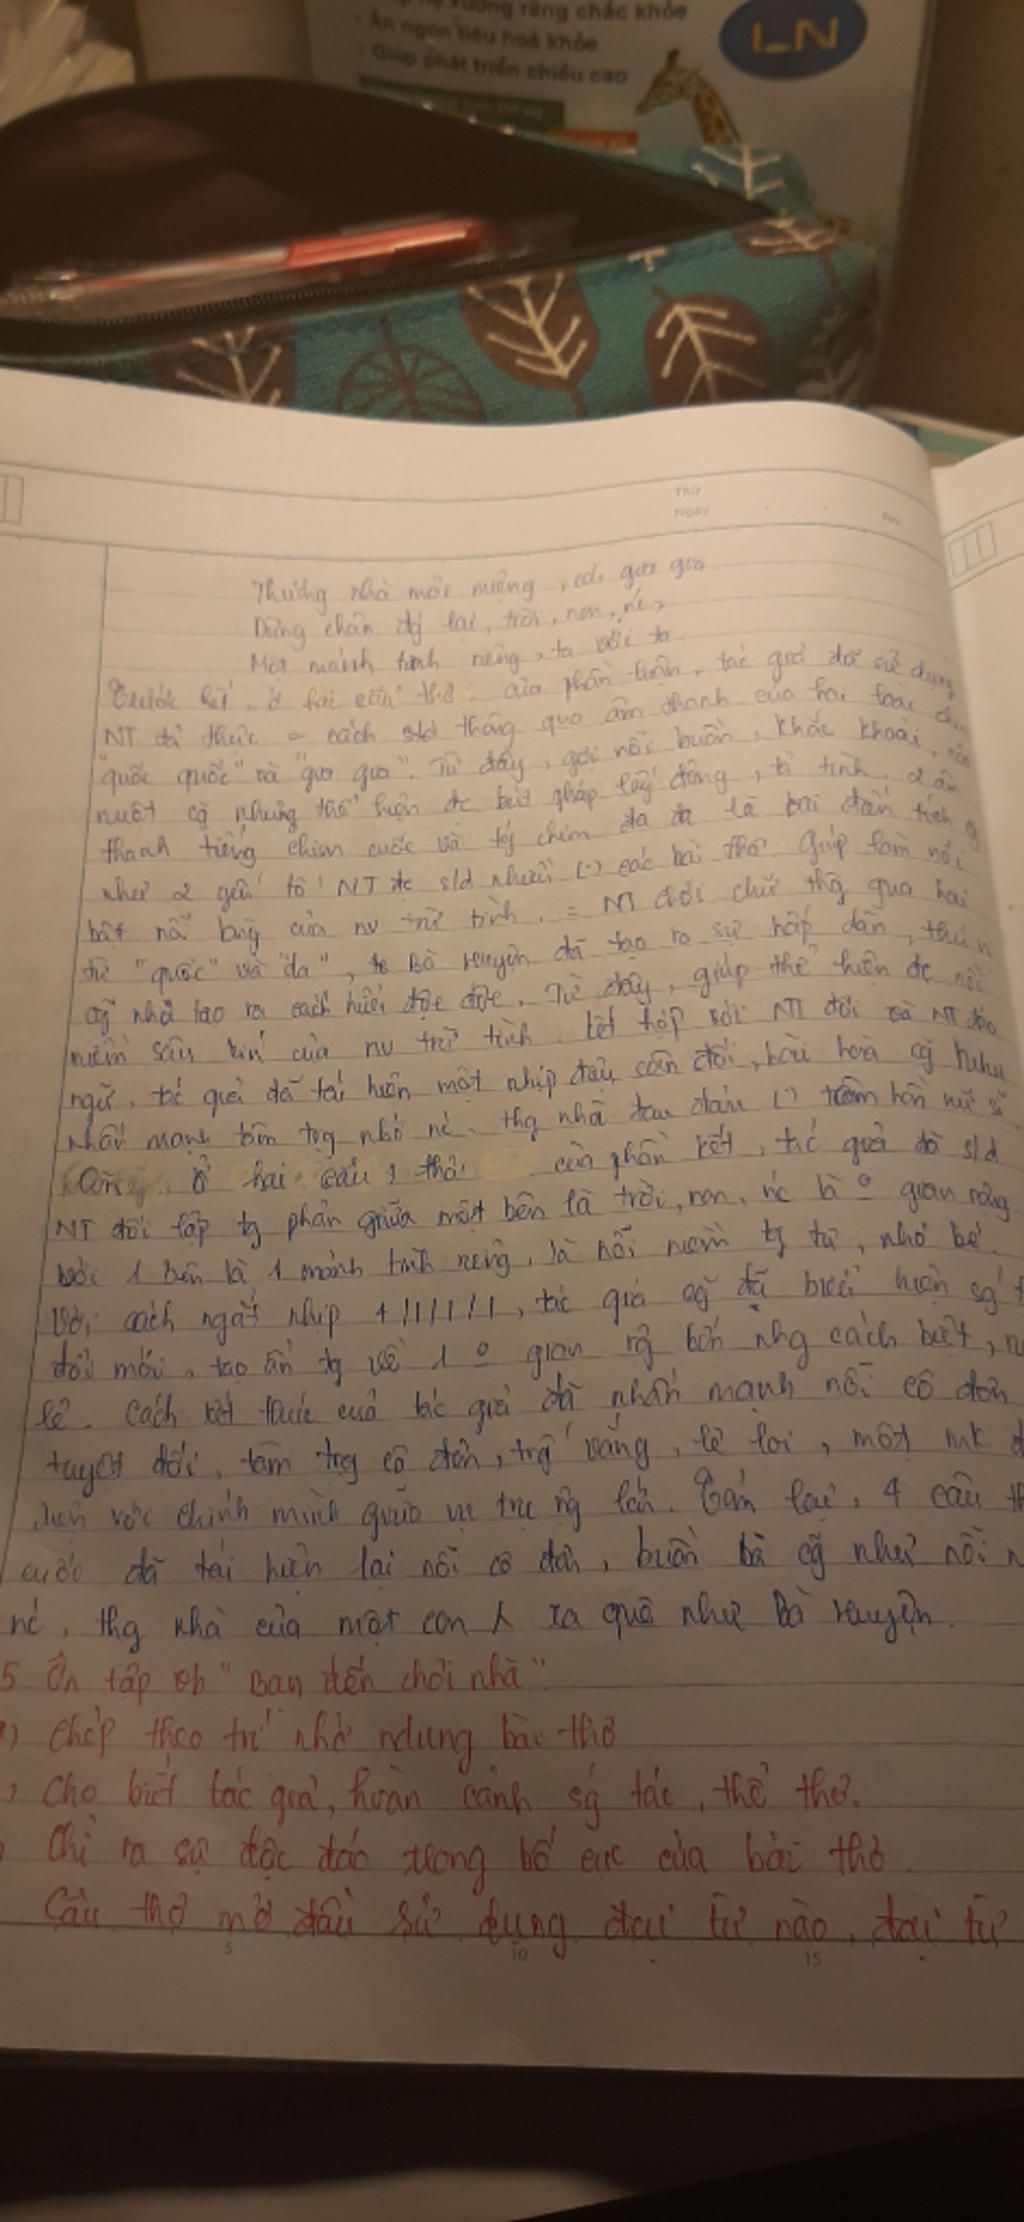 xương răng chắc khỏe
Ăn ngon tiêu hoá khỏe
Giúp phát triển chiều cao
LN
Thứ
Ngày
No
Thương nhà mỏi miệng, cái gia gia
Dừng chân đg lại, trời, non, nc,
Một mảnh tình riêng, ta với ta
Trước hết, ở hai câu thơ của phần luận, tác giả đã sử dụng
NT cách sld thông qua âm thanh của hai loài
"quốc quốc" và "gia gia". Từ đấy, gợi nỗi buồn, khắc khoải,
nuột cg nhưng thể hiện đc bút pháp lấy động, tả tĩnh. 2 âm
thanh tiếng chim cuốc và tg chim đa đa là hai
như 2 yếu tố NT đc sld nhiều (-) các bài thơ. Giúp làm nổi
bật nỗi lòng của nv trữ tình. NT chơi chữ thg qua hai
từ "quốc" và "đa", Bà Huyện đã tạo ra sự hấp dẫn, thú
cg như tạo ra cách hiểu độc đáo. Từ đây, giúp thể hiện đc nỗi
niềm sâu kín của nv trữ tình. Kết hợp với NT đối và NT đảo
ngữ, tác giả đã tái hiện một nhịp điệu cân đối, hài hoà cg như
nhấn mạnh tâm trg nhớ nc, thg nhà đau đáu (-) tâm hồn nữ sĩ
Còn, ở hai câu thơ của phần kết, tác giả đã sld
NT đối lập tg phản giữa một bên là trời, non, nc là o gian rộng
với 1 bên là 1 mảnh tình riêng, là nỗi niềm tg tư, nhỏ bé.
Với cách ngắt nhịp 4/1/1/1, tác giả cg đã biểu hiện sg
đổi mới, tạo ấn tg về 1 o gian rg lớn nhg cách biệt,
lẻ. Cách kết thúc của tác giả đã nhấn mạnh nỗi cô đơn
tuyệt đối, tâm trg cô đơn, trg vắng, lẻ loi, một mk
diện với chính mình giữa vũ trụ rg lớn. Tóm lại, 4 câu
cuối đã tái hiện lại nỗi cô đơn, buồn bã cg như nỗi
nc, thg nhà của một con λ xa quê như Bà Huyện.
5 Ôn tập vb "Bạn đến chơi nhà"
) Chép theo trí nhớ ndung bài thơ
, Cho biết tác giả, hoàn cảnh sg tác, thể thơ.
Chỉ ra sự độc đáo trong bố cục của bài thơ.
Câu thơ mở đầu sử dụng đại từ nào, đại từ
5 10 15